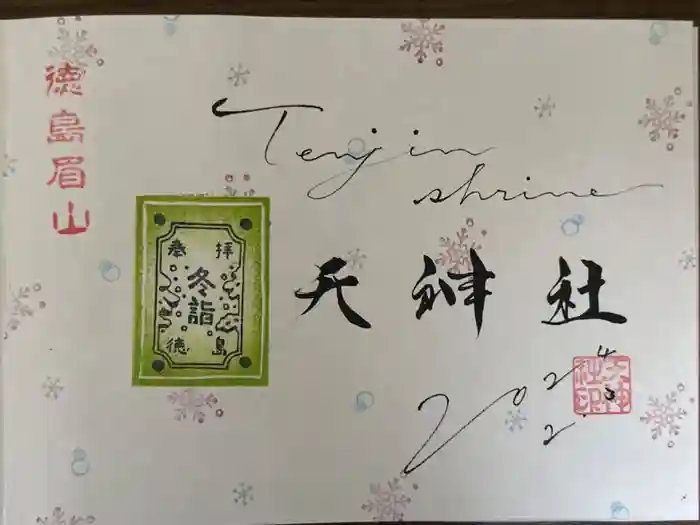 徳島眉山
Tenjin
shrine
奉拝
冬詣
徳島
天神社
2024
2.3
天神社印